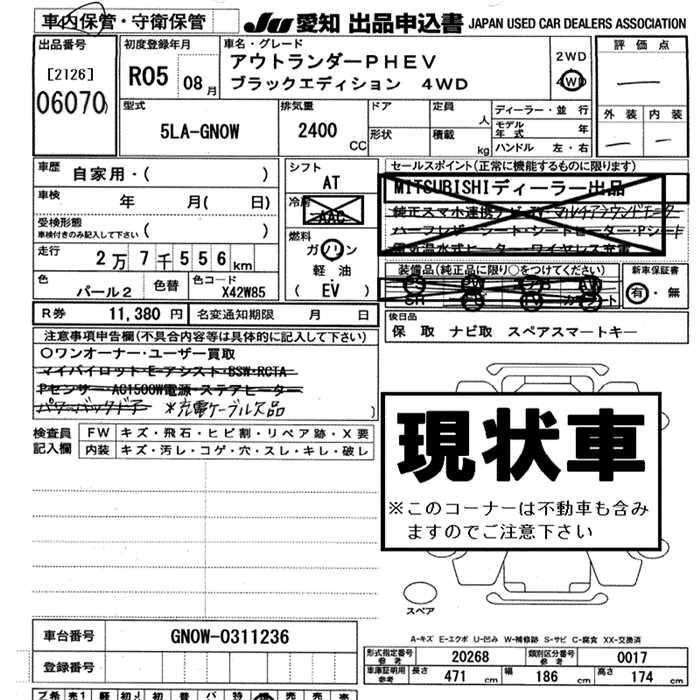 車内保管・守衛保管
JU 愛知 出品申込書 JAPAN USED CAR DEALERS ASSOCIATION
出品番号
[2126]
06070
初度登録年月
R05 08月
車名・グレード
アウトランダーPHEV
ブラックエディション 4WD
2WD
4WD
評価点
外装 内装
型式
5LA-GN0W
排気量
2400 CC
ドア
形状
定員 人
積載 kg
ディーラー・並行
モデル年式 年
ハンドル 左・右
車歴
自家用・( )
車検 年 月( 日)
受検形態
車検付きのみ記入して下さい ( )
走行
2万7千556km
色
パール2
色替
色コード
X42W85
シフト
AT
冷房
AAC
燃料
ガソリン
軽・油
( EV )
セールスポイント(正常に機能するものに限ります)
MITSUBISHIディーラー出品
純正スマホ連携ナビ・TV・マルチアラウンドモニター
ハーフレザーシート・シートヒーター・Pシート
電気温水式ヒーター・ワイヤレス充電
装備品(純正品に限り○をつけてください)
PS PW
SR カワシート
新車保証書
有・無
R券 11,380円
名変通知期限 月 日
後日品
保 取 ナビ取 スペアスマートキー
注意事項申告欄(不具合内容等は具体的に記入して下さい)
○ワンオーナー・ユーザー買取
マイパイロット・E-アシスト・BSW・RCTA
Pセンサー・AC1500W電源・ステアヒーター
パワーバックドア ※充電ケーブル欠品
検査員記入欄
FW キズ・飛石・ヒビ割・リペア跡・X要
内装 キズ・汚レ・コゲ・穴・スレ・キレ・破レ
現状車
※このコーナーは不動車も含み
ますのでご注意下さい
スペア
A-キズ E-エクボ U-凹み W-補修跡 S-サビ C-腐食 XX-交換済
車台番号 GN0W-0311236
登録番号
形式指定番号 参考 20268
類別区分番号 参考 0017
車庫証明用 参考 長さ 471 cm 幅 186 cm 高さ 174 cm